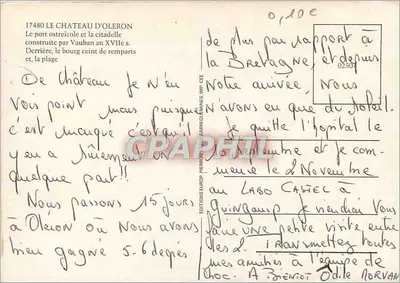 0,10€
17480 LE CHATEAU D'OLERON
Le port ostréicole et la citadelle
construite par Vauban au XVIIe s.
Derrière, le bourg ceint de remparts
et, la plage
De château je n'en
vois point mais puisque
c'est marqué c'est qu'il
y en a sûrement un
quelque part!!
Nous passons 15 jours
à Oléron où Nous avons
bien gagné 5-6 degrés
EDITIONS EUROP PIERRON SARREGUEMINES IMP. CEE
CPAPHIL
02507
de plus par rapport à
la Bretagne, et depuis
Notre arrivée, Nous
N'avons eu que du soleil.
Je quitte l'hôpital le
15 septembre et je com-
mence le 2 Novembre
au LABO CASTEL à
Guingamp. Je viendrai vous
faire une petite visite entre
les 2. TRANSMETTEZ toutes
mes amitiés à l'équipe de
choc. A BIENTOT Odile MORVAN